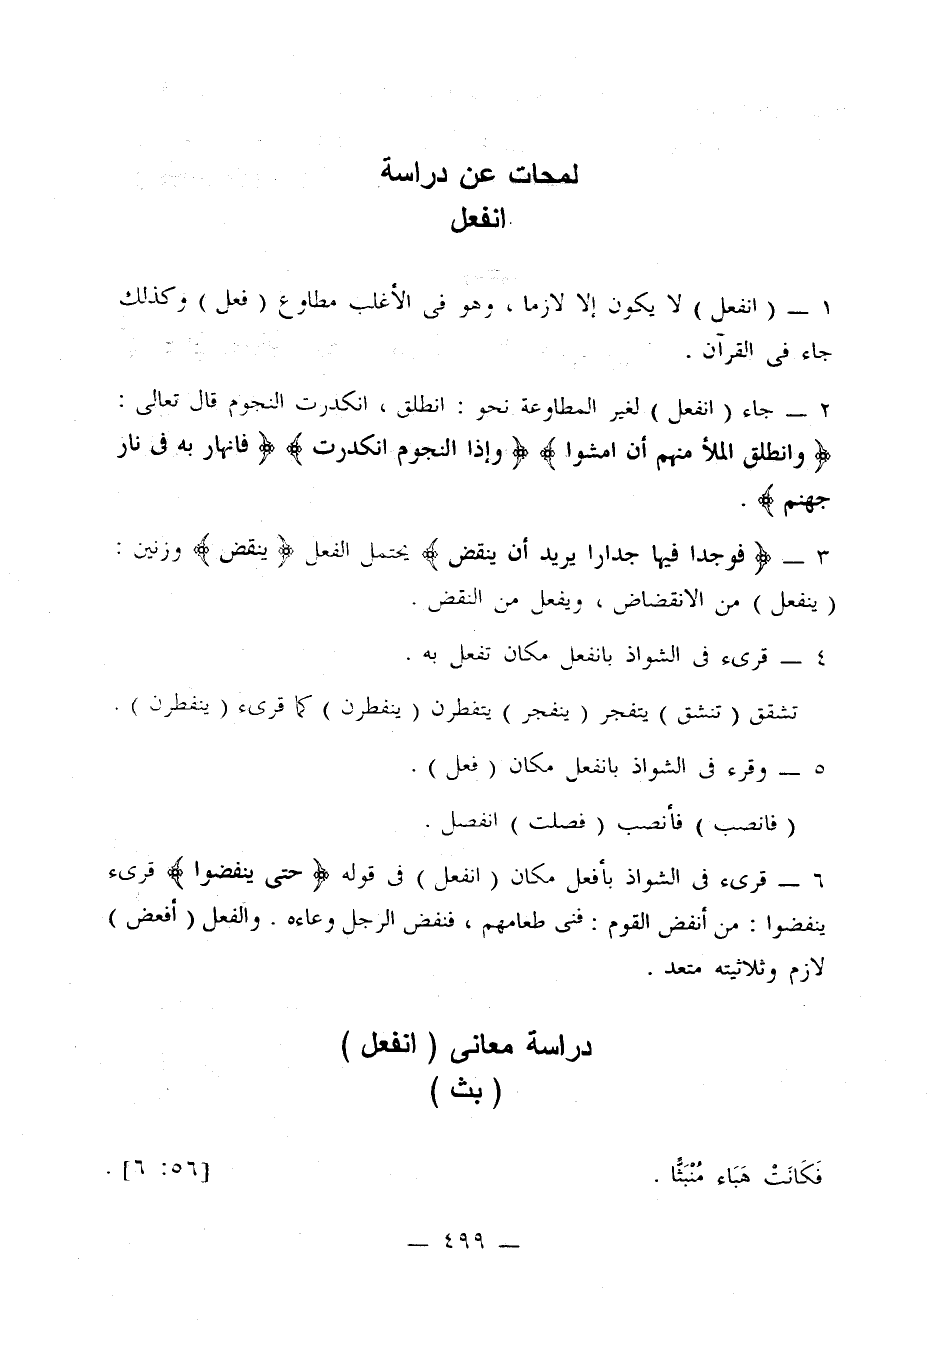 لمحات عن دراسة
انفعل
١ ــ ( انفعل ) لا يكون إلا لازما ، وهو فى الأغلب مطاوع ( فعل ) وكذلك
جاء فى القرآن .
٢ ــ جاء ( انفعل ) لغير المطاوعة نحو : انطلق ، انكدرت النجوم قال تعالى :
﴿ وانطلق الملأ منهم أن امشوا ﴾ ﴿ وإذا النجوم انكدرت ﴾ ﴿ فانهار به فى نار
جهنم ﴾ .
٣ ــ ﴿ فوجدا فيها جدارا يريد أن ينقض ﴾ يحتمل الفعل ﴿ ينقض ﴾ وزنين :
( ينفعل ) من الانقضاض ، ويفعل من النقض .
٤ ــ قرىء فى الشواذ بانفعل مكان تفعل به .
تشقق ( تنشق ) يتفجر ( ينفجر ) يتفطرن ( ينفطرن ) كما قرىء ( ينفطرن ) .
٥ ــ وقرء فى الشواذ بانفعل مكان ( فعل ) .
( فانصب ) فأنصب ( فصلت ) انفصل .
٦ ــ قرىء فى الشواذ بأفعل مكان ( انفعل ) فى قوله ﴿ حتى ينفضوا ﴾ قرىء
ينفضوا : من أنفض القوم : فنى طعامهم ، فنفض الرجل وعاءه . والفعل ( أفعض )
لازم وثلاثيته متعد .
دراسة معانى ( انفعل )
( بث )
فَكَانَتْ هَبَاء مُنْبَثًّا . [٥٦: ٦] .
ــ ٤٩٩ ــ